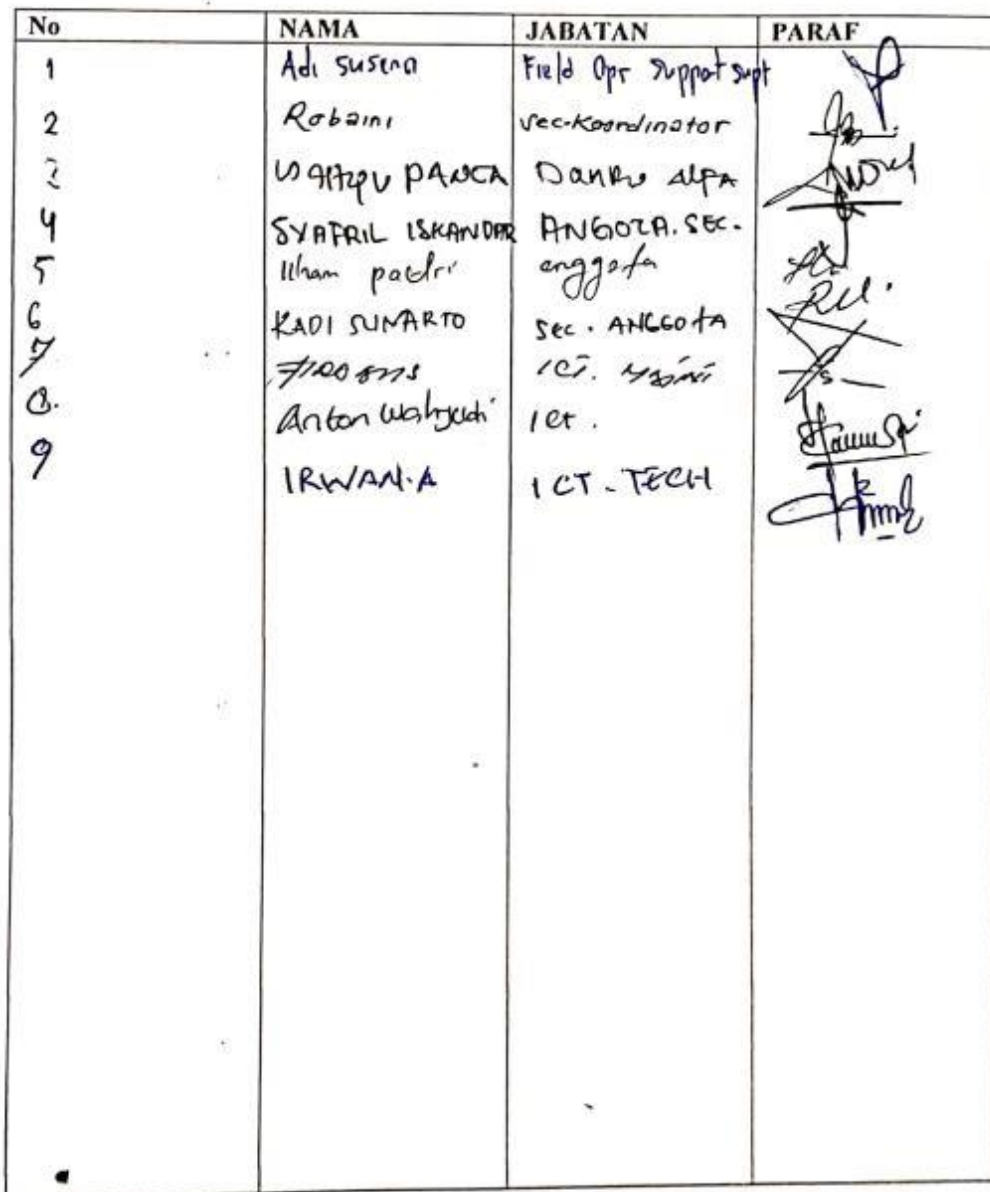 No NAMA JABATAN PARAF
1 Adi Susena Field Opr Support Supt
2 Robaini Sec-Koordinator
3 PANCA DANRU ALFA
4 SYAFRIL ISKANDAR ANGGOTA. SEC.
5 Ilham padri anggota
6 KADI SUNARTO SEC. ANGGOTA
7 ICT.
8. Anton Wahyudi ICT.
9 IRWAN.A ICT. TECH